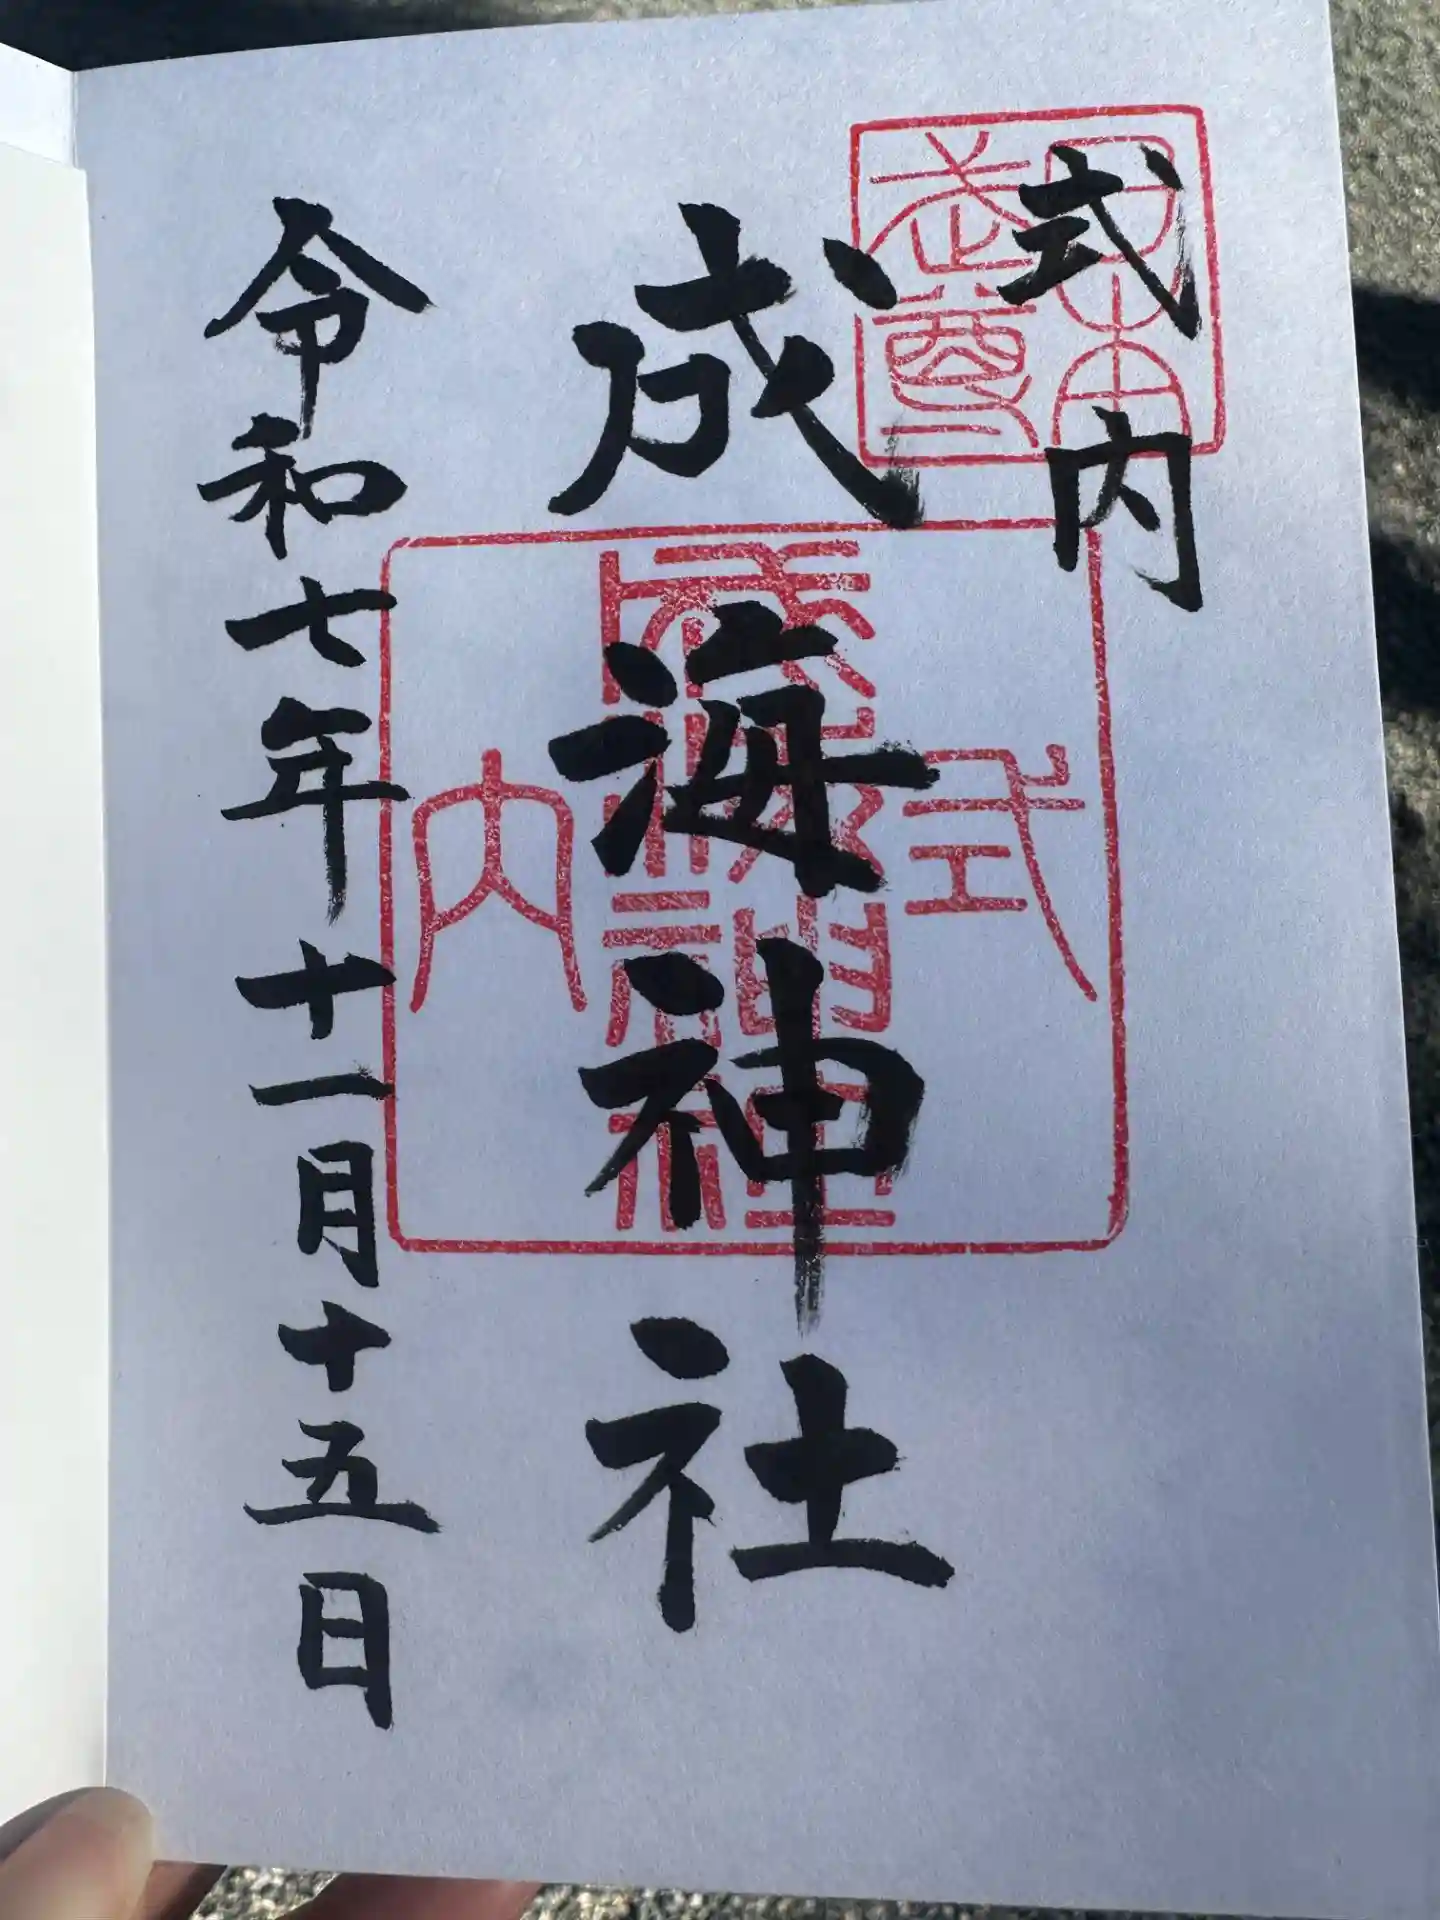 式内
日本武尊
成海神社
式内
成海神社
令和七年十一月十五日